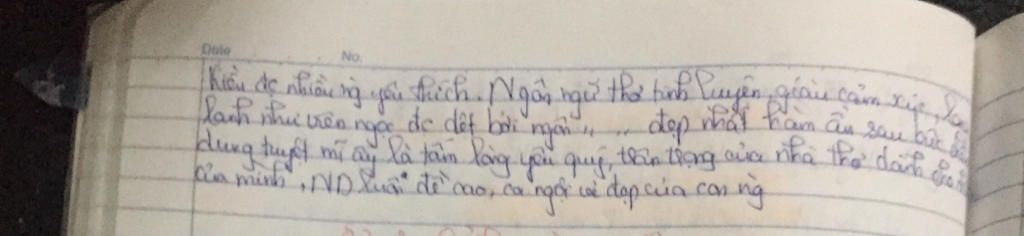 Date No.
Kiều đc nhiều ng yêu thích. Ngôn ngữ thơ tinh luyện, giàu cảm xúc,
lanh như viên ngọc đc dệt bởi ngôn " " đẹp nhất hàm ẩn sau bức
dung tuyệt mĩ ấy là tấm lòng yêu quý, trân trọng của nhà thơ dành cho
của mình, ND luôn đề cao, ca ngợi vẻ đẹp của con ng